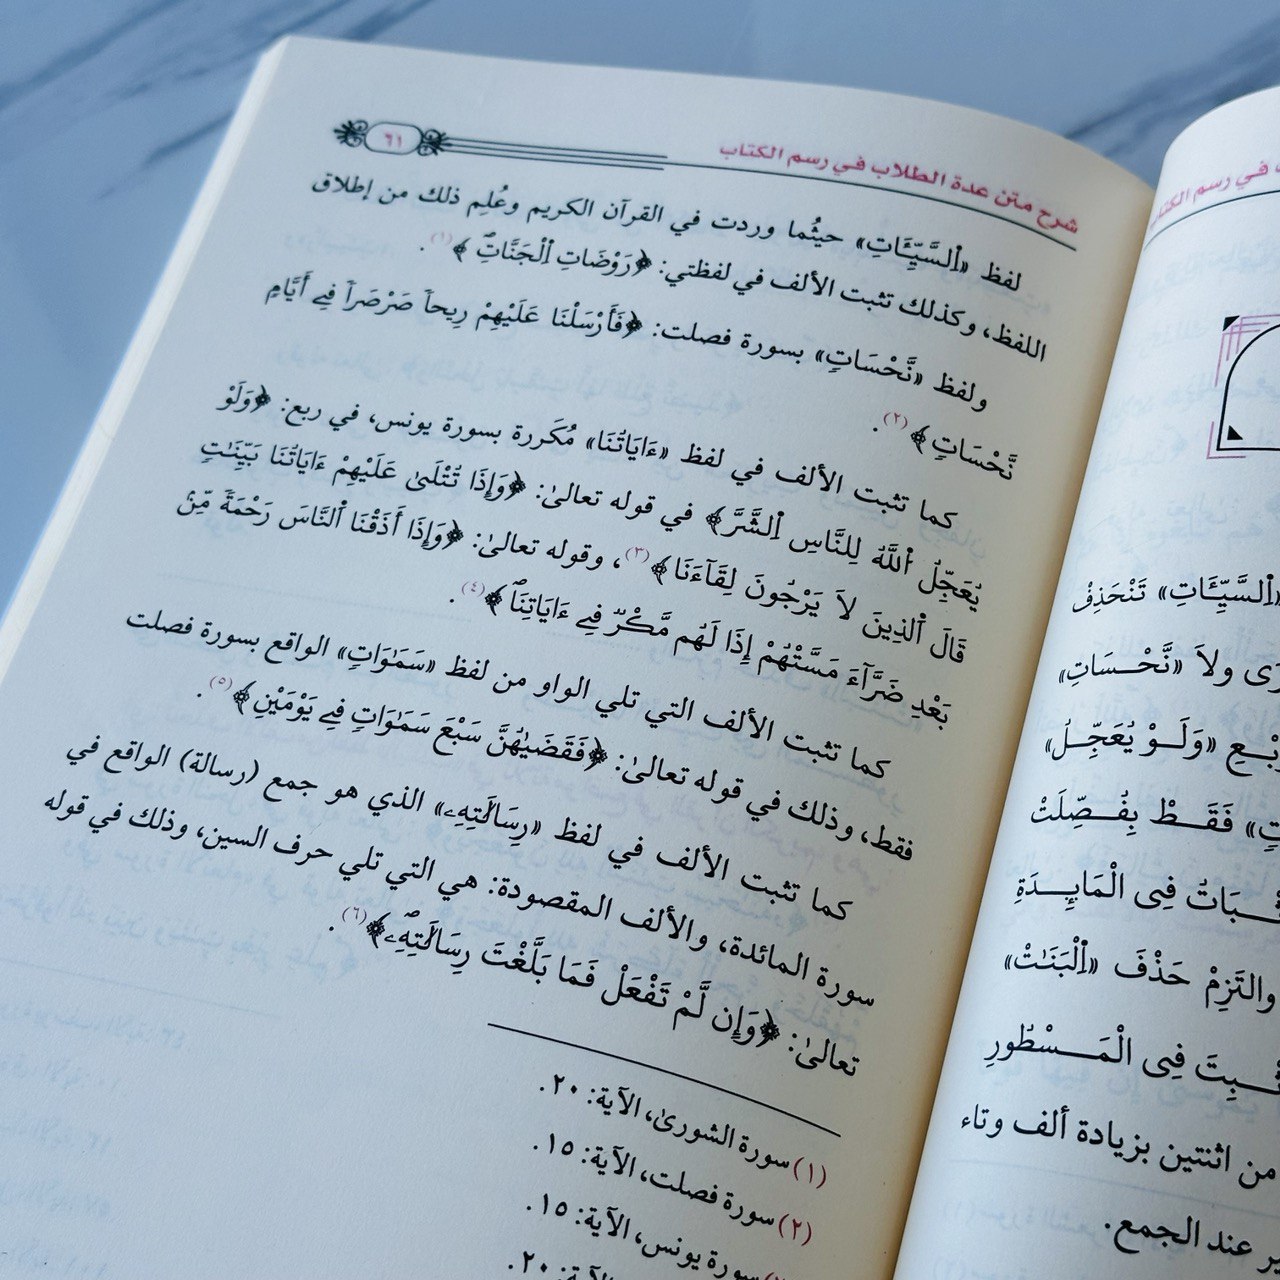 في رسم الكتاب
«اِ۬لسَّيِّـَٔاتِ» تَنْحَذِفْ
ولاَ «نَّحْسَاتِ»
«وَلَوْ يُعَجِّلُ»
فَقَطْ بِفُصِّلَتْ
فِى الْمَايِٕدَةِ
والتَزِمْ حَذْفَ «اِ۬لْبَنَٰتْ»
فِى الْمَسْطُورِ
من اثنتين بزيادة ألف وتاء
عند الجمع.
شرح متن عدة الطلاب في رسم الكتاب
٦١
لفظ «اِ۬لسَّيِّـَٔاتِ» حيثُما وردت في القرآن الكريم وعُلِم ذلك من إطلاق
اللفظ، وكذلك تثبت الألف في لفظتي: ﴿رَوْضَاتِ اِ۬لْجَنَّاتِۖ﴾(١).
ولفظ «نَّحْسَاتٖ» بسورة فصلت: ﴿فَأَرْسَلْنَا عَلَيْهِمْ رِيحاٗ صَرْصَراٗ فِےٓ أَيَّامٖ
نَّحْسَاتٖ﴾(٢).
كما تثبت الألف في لفظ «ءَايَاتُنَا» مُكَررة بسورة يونس، في ربع: ﴿وَلَوْ
يُعَجِّلُ اُ۬للَّهُ لِلنَّاسِ اِ۬لشَّرَّ﴾ في قوله تعالىٰ: ﴿وَإِذَا تُتْلَىٰ عَلَيْهِمْ ءَايَاتُنَا بَيِّنَٰتٖ
قَالَ اَ۬لذِينَ لاَ يَرْجُونَ لِقَآءَنَا﴾(٣)، وقوله تعالىٰ: ﴿وَإِذَا أَذَقْنَا اَ۬لنَّاسَ رَحْمَةٗ مِّنۢ
بَعْدِ ضَرَّآءَ مَسَّتْهُمْ إِذَا لَهُم مَّكْرٞ فِےٓ ءَايَاتِنَاۖ﴾(٤).
كما تثبت الألف التي تلي الواو من لفظ «سَمَٰوَاتٖ» الواقع بسورة فصلت
فقط، وذلك في قوله تعالىٰ: ﴿فَقَضَىٰهُنَّ سَبْعَ سَمَٰوَاتٖ فِے يَوْمَيْنِ﴾(٥).
كما تثبت الألف في لفظ «رِسَالَٰتِهِۦ» الذي هو جمع (رسالة) الواقع في
سورة المائدة، والألف المقصودة: هي التي تلي حرف السين، وذلك في قوله
تعالىٰ: ﴿وَإِن لَّمْ تَفْعَلْ فَمَا بَلَّغْتَ رِسَالَٰتِهِۦۖ﴾(٦).
(١) سورة الشورىٰ، الآية: ٢٠.
(٢) سورة فصلت، الآية: ١٥.
سورة يونس، الآية: ١٥.
الآية: ٢٠.